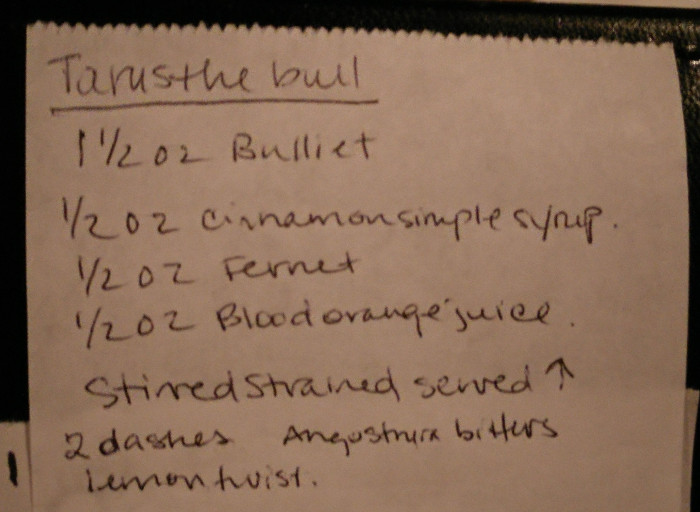 Tarusthe bull
1 1/2 oz Bulliet
1/2 oz cinnamon simple syrup.
1/2 oz Fernet
1/2 oz Blood orange juice.
Stirred Strained served ↑
2 dashes Angostura bitters
lemon twist.